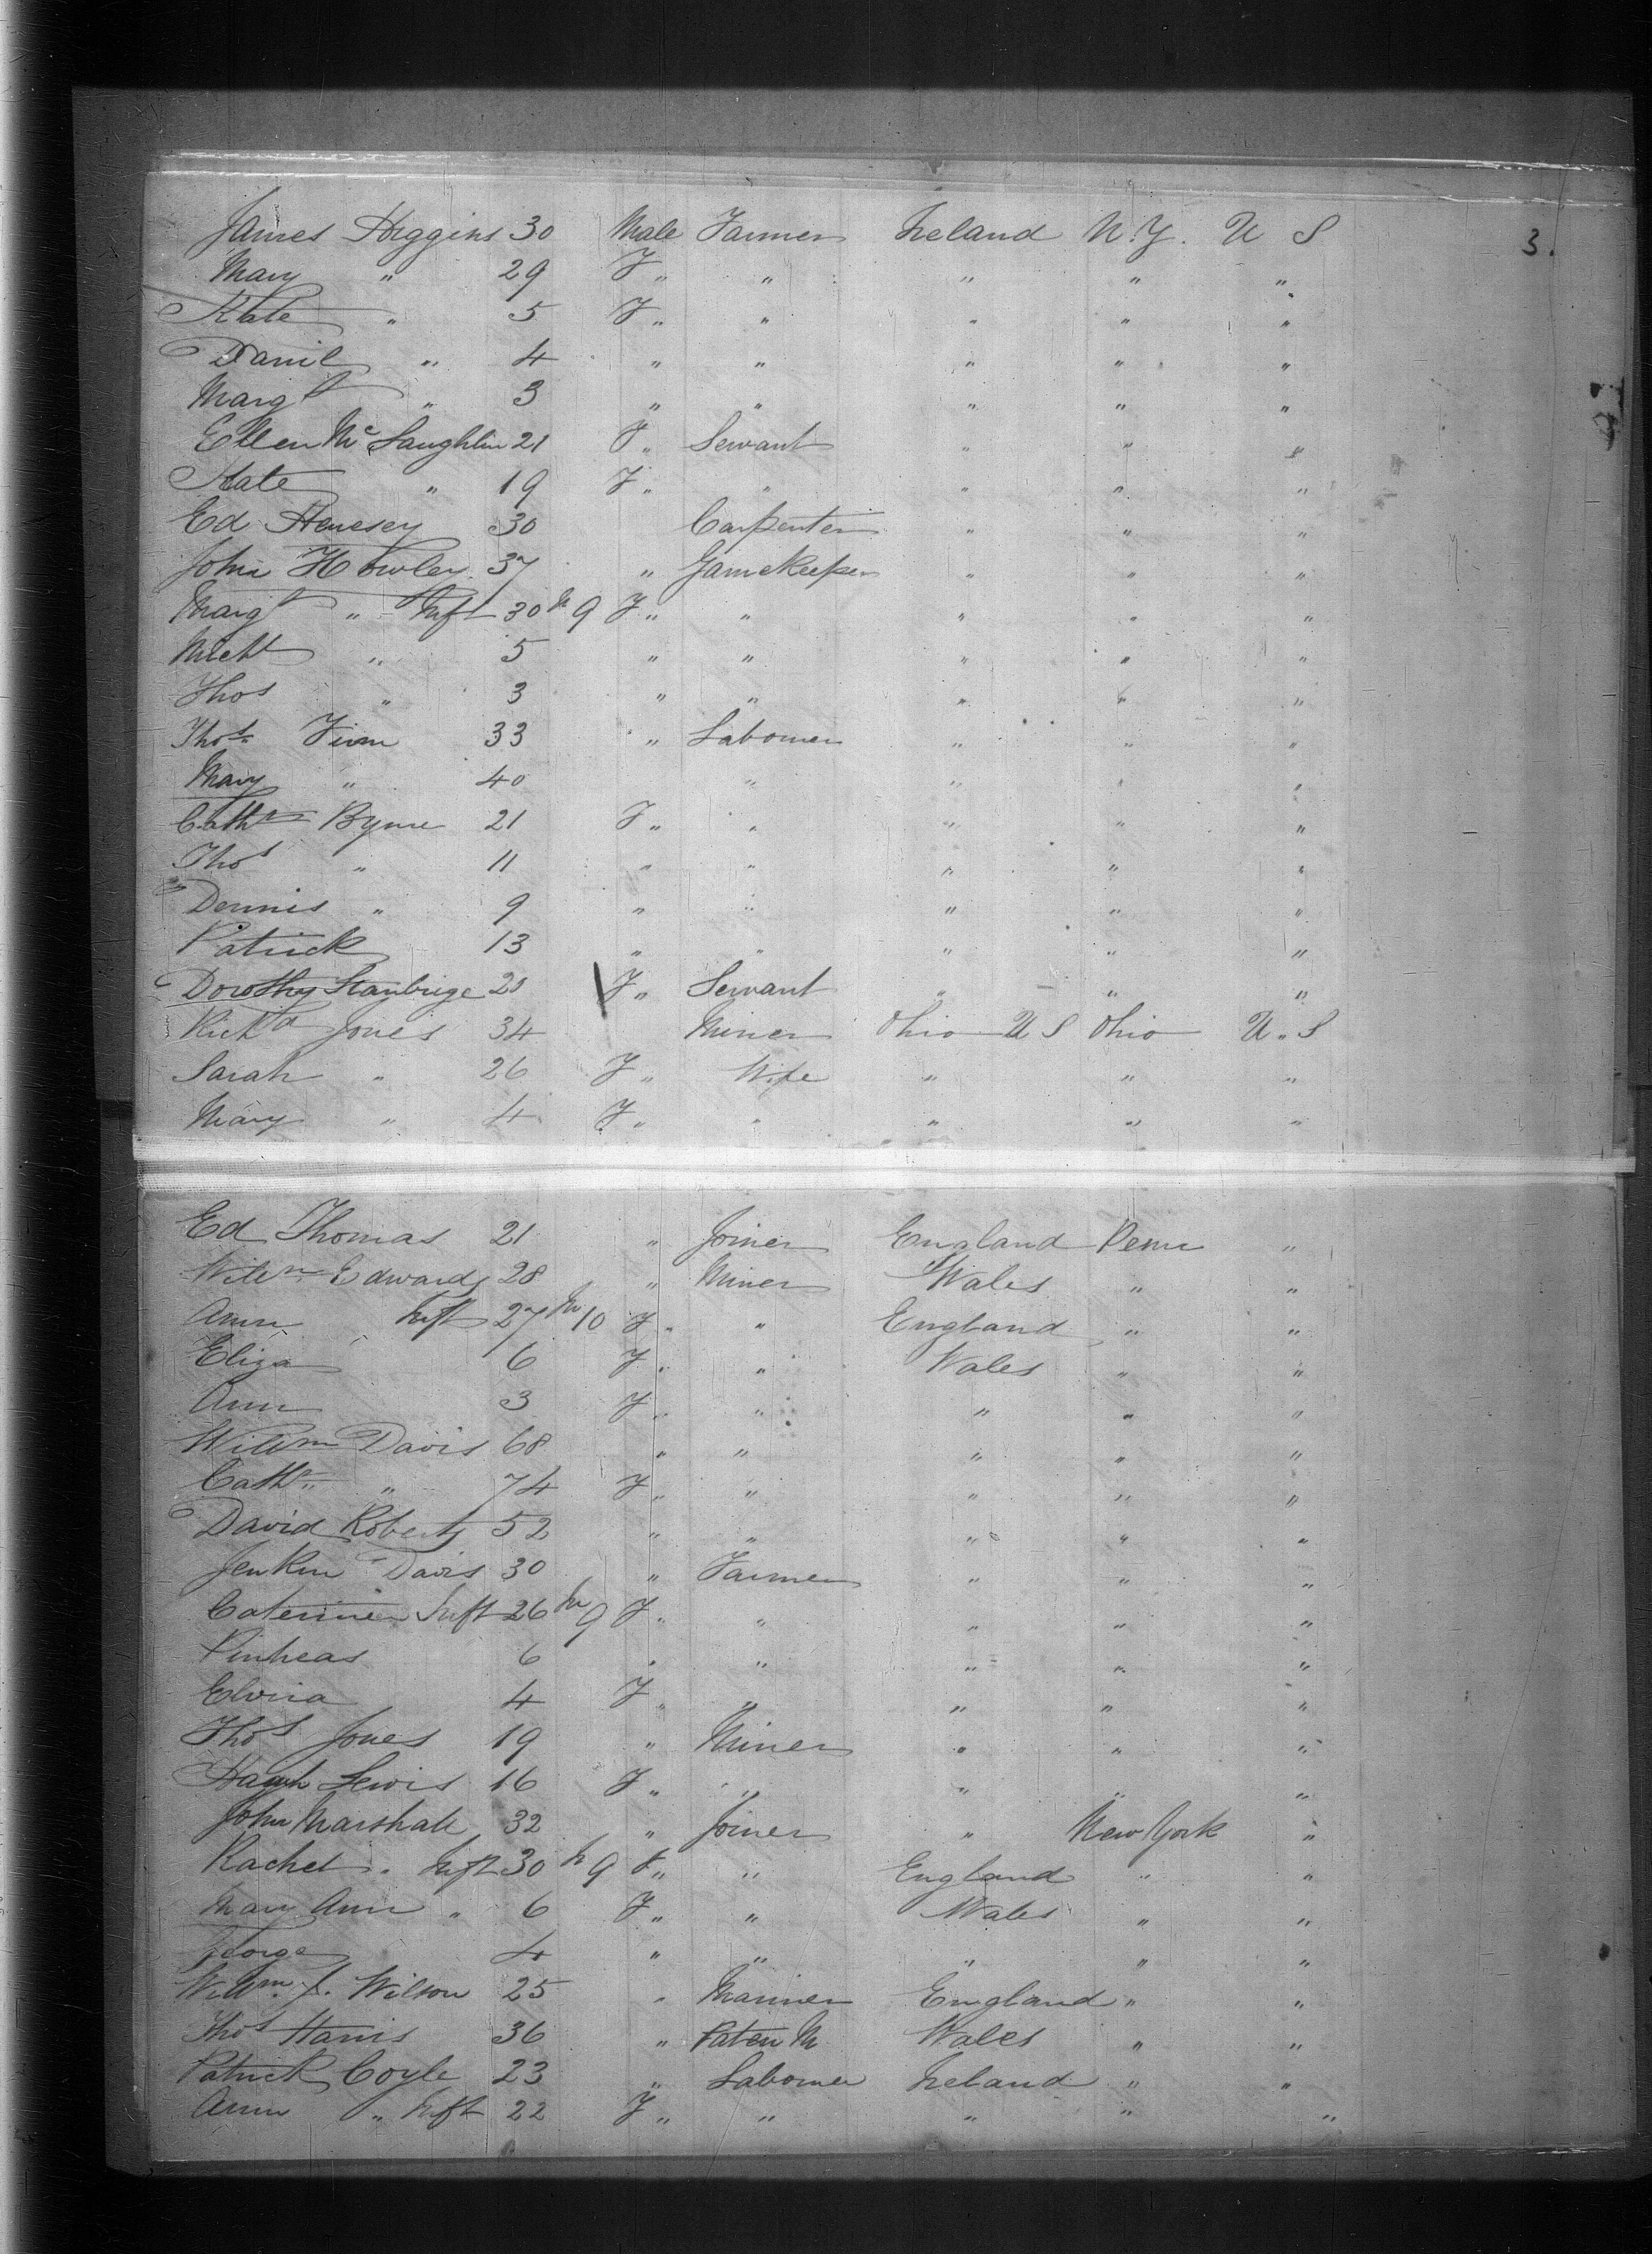 James Higgins 30 Male Farmer Ireland N.Y. U S 3.
Mary " 29 F " " " " "
Kate " 5 F " " " " "
Daniel " 4 " " " " "
Margt " 3 " " " " "
Ellen McLaughlin 21 F " Servant " " "
Kate " 19 F " " " " "
Ed Henesey 30 Carpenter " " "
John Howley 37 " Gamekeeper " " "
Margt " Inft 30 M 9 F " " " " "
Michl " 5 " " " " "
Thos " 3 " " " " "
Thos Finn 33 " Labourer " " "
Mary " 40 " " " "
Cathn Byrne 21 F " " " " "
Thos " 11 " " " " "
Dennis " 9 " " " " "
Patrick 13 " " " " "
Dorothy Stanbrige 21 F " Servant " " "
Richd Jones 34 Miner Ohio U S Ohio U. S
Sarah " 26 F " Wife " " "
Mary " 4 F " " " " "
Ed Thomas 21 " Joiner England Penn "
Willm Edwards 28 " Miner Wales " "
Ann Inft 27 M 10 F " " England " "
Eliza 6 F " " Wales " "
Ann 3 F " " " " "
Willm Davis 68 " " " " "
Cathn " 74 F " " " " "
David Roberts 52 " " " " "
Jenkin Davis 30 " Farmer " " "
Caterine Inft 26 M 9 F " " " " "
Pinheas 6 " " " " "
Elvira 4 F " " " " "
Thos Jones 19 " Miner " " "
Hagh Lewis 16 F " " " " "
John Marshall 32 " Joiner " New York "
Rachel " Inft 30 M 9 F " " England " "
Mary Ann " 6 F " " Wales " "
George 4 " " " " "
Willm J. Wilson 25 " Mariner England " "
Thos Harris 36 " Paten M Wales " "
Patrick Coyle 23 " Labourer Ireland " "
Ann " Inft 22 F " " " " "